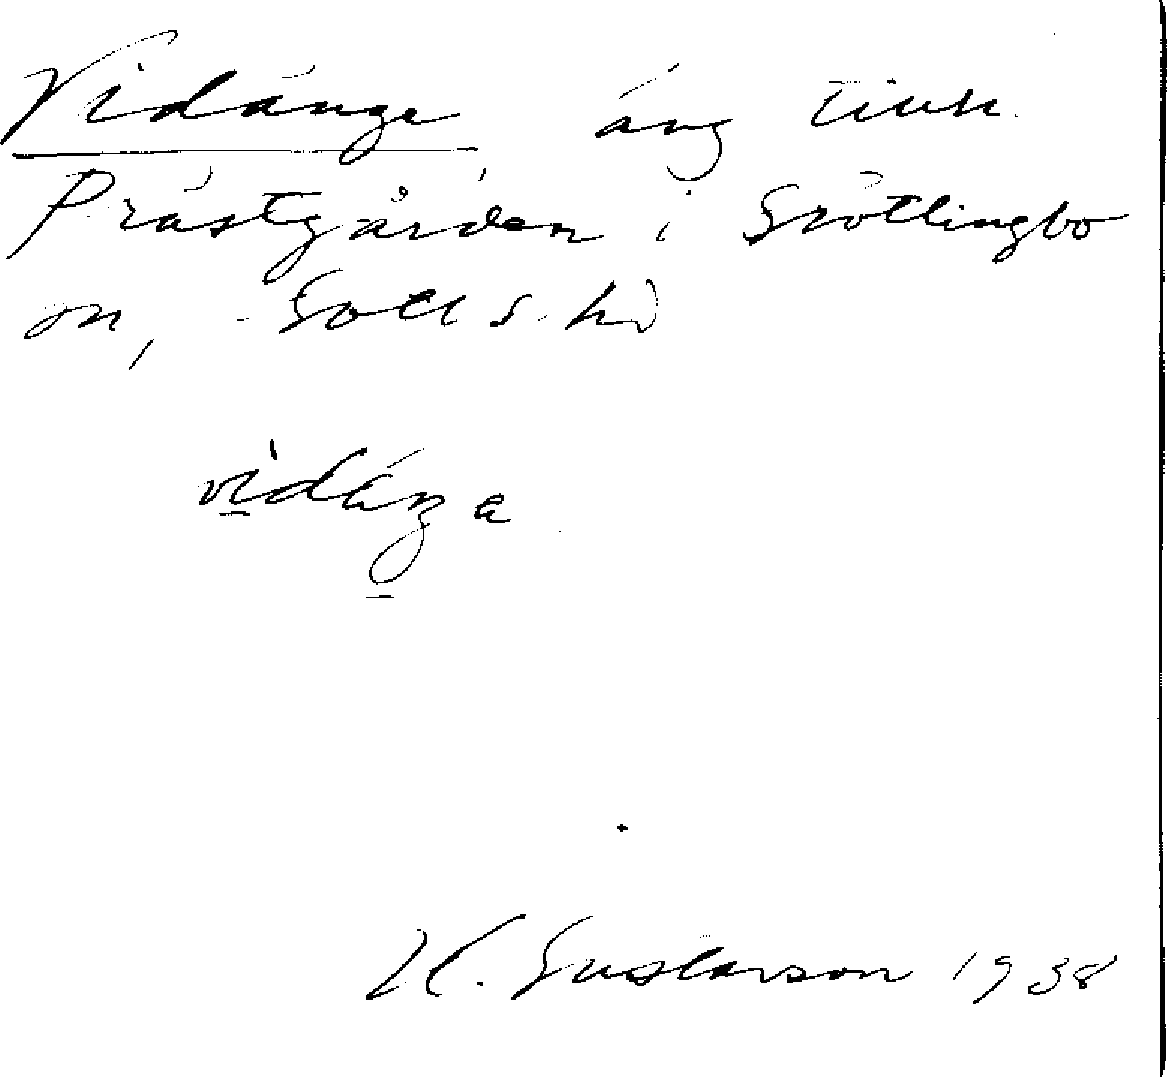 Vidänge äng tillh.
Prästgården i Grötlingbo
sn, Gotl s. hd
vidäŋa
H. Gustavson 1938